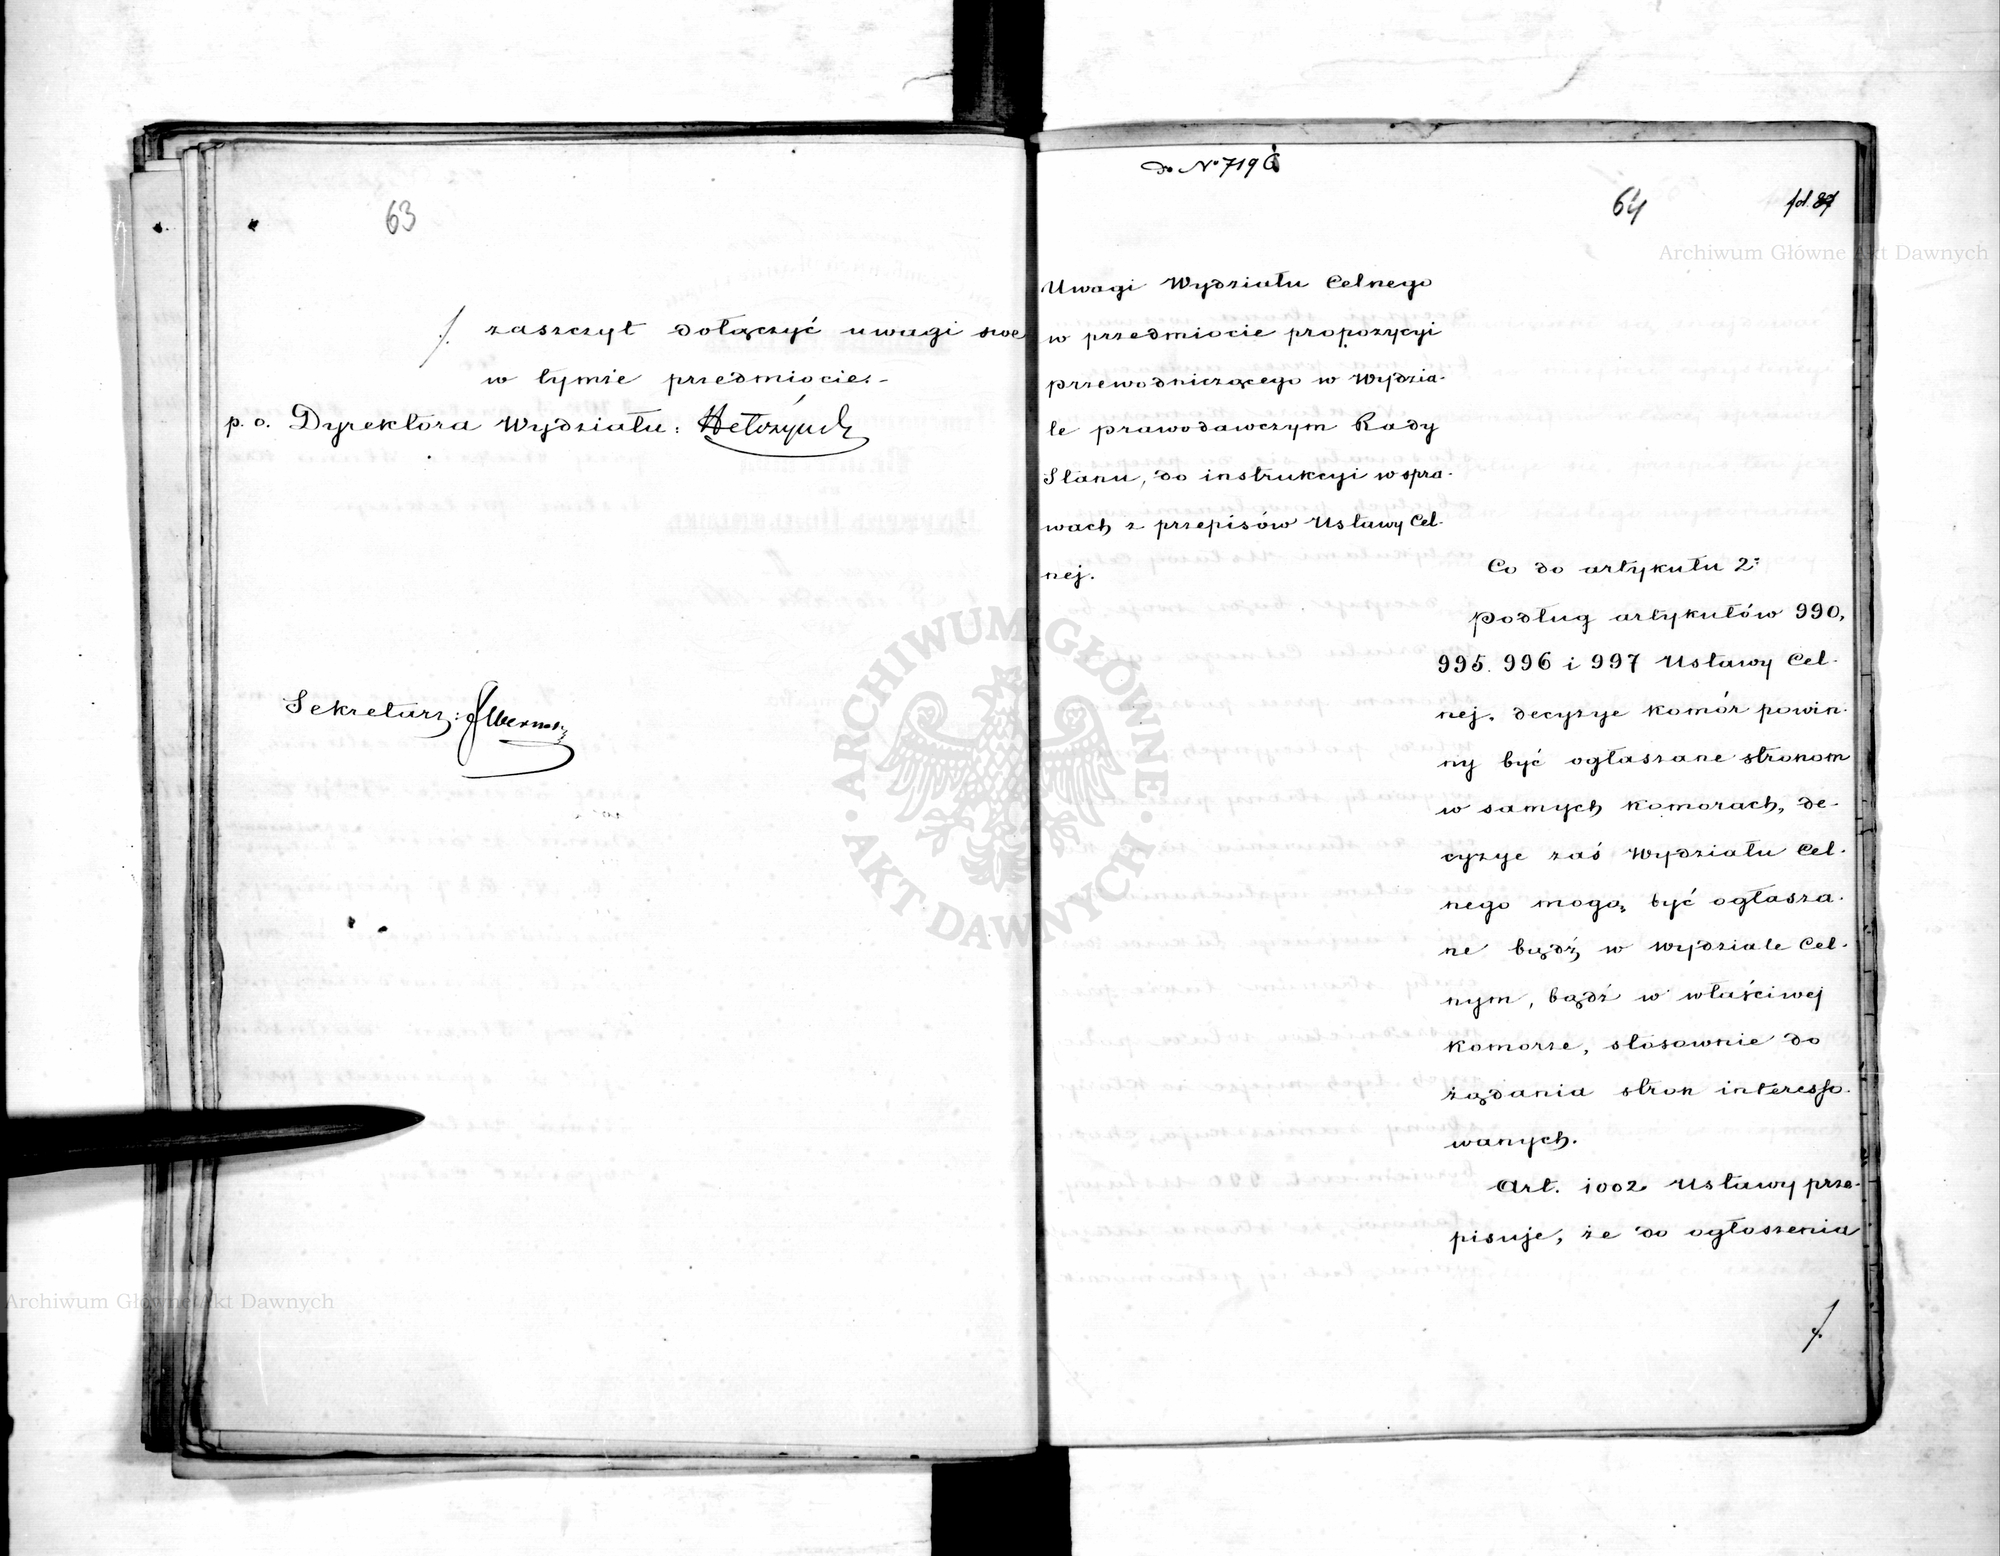 63
zaszczyt dołączyć uwagi swe
w tymże przedmiocie.-
p. o. Dyrektora Wydziału:
Sekretarz:
do No 7196
64
fol. 87
Uwagi Wydziału Celnego
w przedmiocie propozycyi
przewodniczącego w Wydzia-
le prawodawczym Rady
Stanu, do instrukcyi w spra-
wach z przepisów Ustawy Cel-
nej.
Co do artykułu 2:
Podług artykułów 990,
995. 996 i 997 Ustawy Cel-
nej, decyzye komór powin-
ny być ogłaszane stronom
w samych komorach, de-
cyzye zaś Wydziału Cel-
nego mogą być ogłasza-
ne bądź w Wydziale Cel-
nym, bądź w właściwej
komorze, stosownie do
żądania stron interesso-
wanych.
Art. 1002 Ustawy prze-
pisuje, że do ogłoszenia
Archiwum Główne Akt Dawnych
ARCHIWUM GŁÓWNE · AKT DAWNYCH ·
Archiwum Główne Akt Dawnych